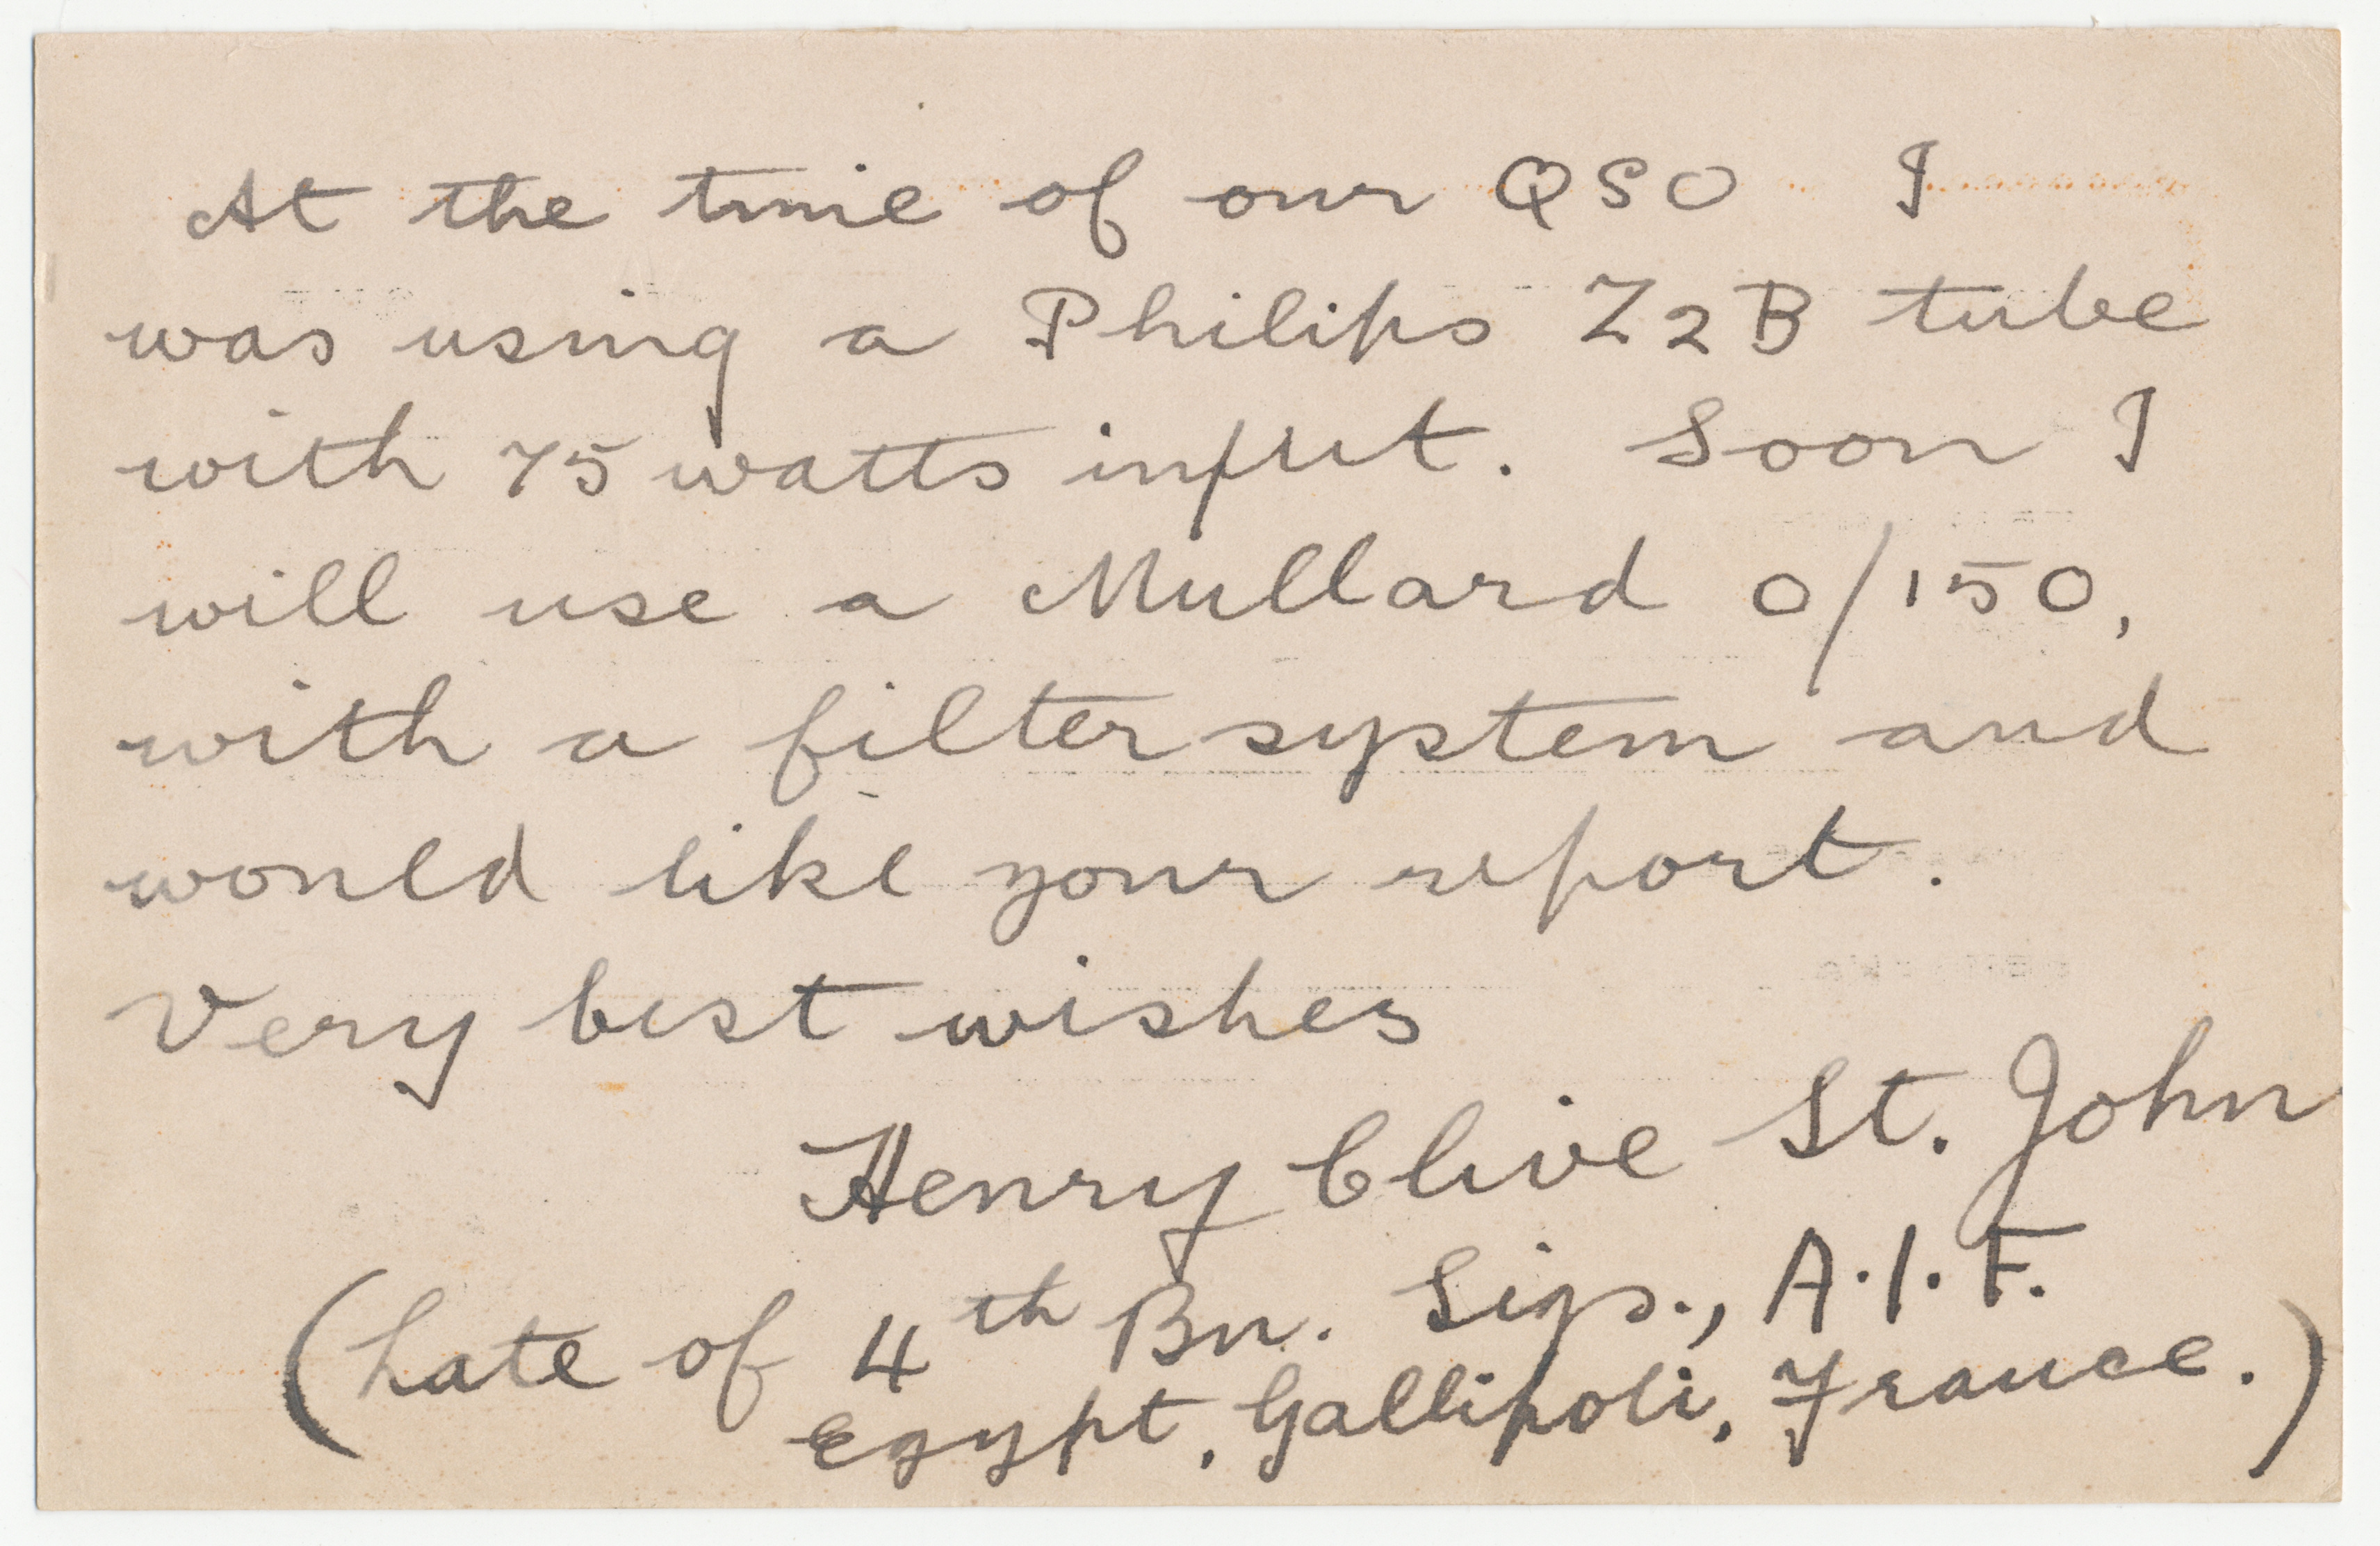 At the time of our QSO I
was using a Philips Z2B tube
with 75 watts input. Soon I
will use a Mullard 0/150,
with a filter system and
would like your report.
Very best wishes
Henry Clive St. John
(Late of 4th Bn. Sigs., A.I.F.
Egypt, Gallipoli, France.)